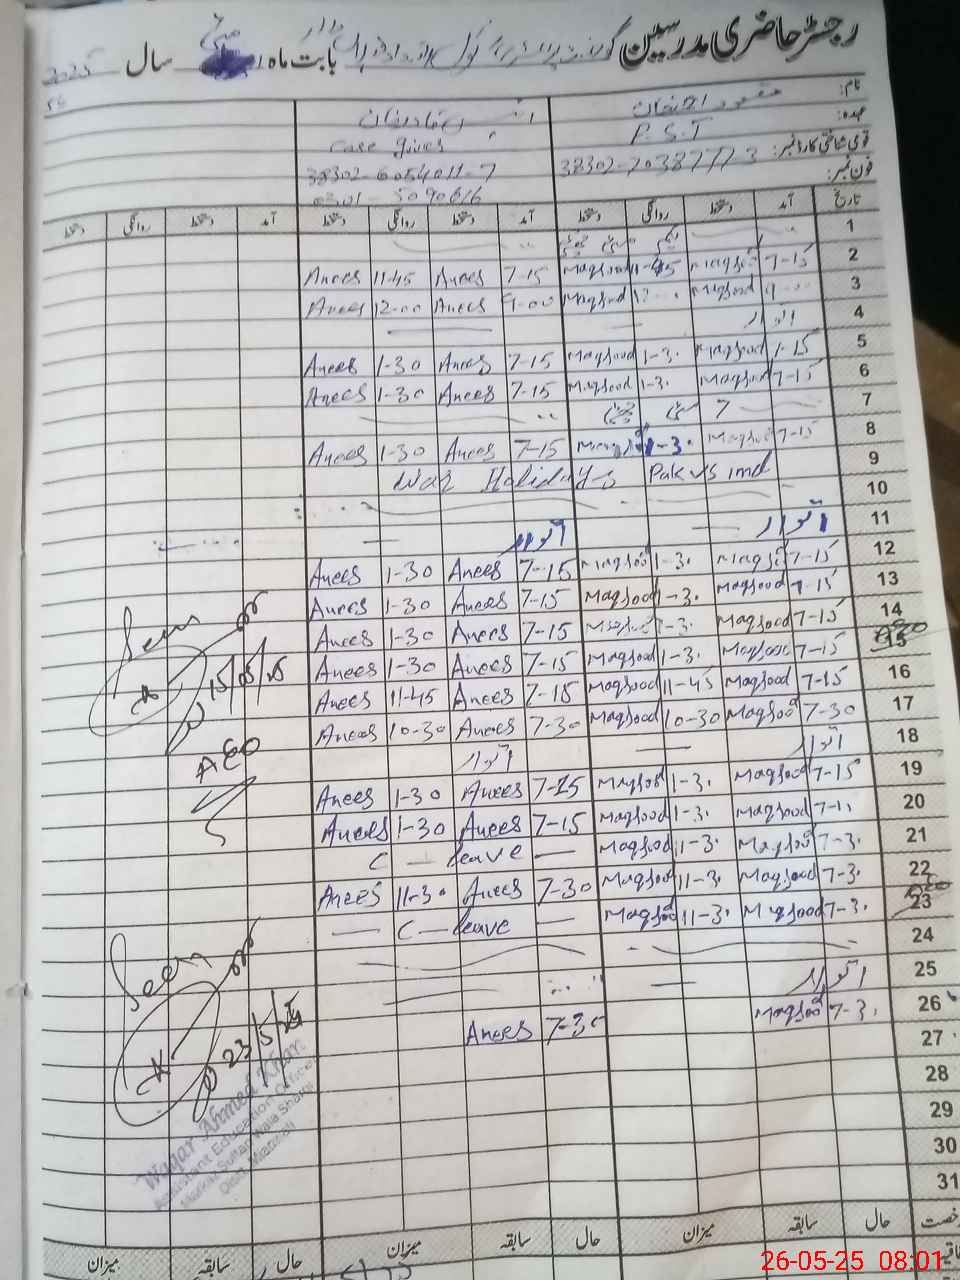 رجسٹر حاضری مدرسین بابت ماہ مئی سال 2025
نام:
عہدہ: P.S.T Case giver
قومی شناختی کارڈ نمبر: 38302-7038777-3 38302-6054011-7
فون نمبر: 0301-5090616
تاریخ آمد دستخط روانگی دستخط آمد دستخط روانگی دستخط آمد دستخط روانگی دستخط
1 یکم مئی چھٹی
2 7-15 Maqsood 11-45 Maqsood 7-15 Anees 11-45 Anees
3 9-00 Maqsood 12-00 Maqsood 9-00 Anees 12-00 Anees
4 اتوار
5 7-15 Maqsood 1-30 Maqsood 7-15 Anees 1-30 Anees
6 7-15 Maqsood 1-30 Maqsood 7-15 Anees 1-30 Anees
7 7 مئی چھٹی
8 7-15 Maqsood 1-30 Maqsood 7-15 Anees 1-30 Anees
9 War Holidays Pak vs ind
10
11 اتوار اتوار
12 7-15 Maqsood 1-30 Maqsood 7-15 Anees 1-30 Anees
13 7-15 Maqsood 1-30 Maqsood 7-15 Anees 1-30 Anees
14 7-15 Maqsood 1-30 Maqsood 7-15 Anees 1-30 Anees
15 7-15 Maqsood 1-30 Maqsood 7-15 Anees 1-30 Anees
16 7-15 Maqsood 11-45 Maqsood 7-15 Anees 11-45 Anees
17 7-30 Maqsood 10-30 Maqsood 7-30 Anees 10-30 Anees
18 اتوار اتوار
19 7-15 Maqsood 1-30 Maqsood 7-15 Anees 1-30 Anees
20 7-15 Maqsood 1-30 Maqsood 7-15 Anees 1-30 Anees
21 7-30 Maqsood 11-30 Maqsood C - leave
22 7-30 Maqsood 11-30 Maqsood 7-30 Anees 11-30 Anees
23 7-30 Maqsood 11-30 Maqsood C - leave
24
25 اتوار
26 7-30 Maqsood 7-30 Anees
27
28
29
30
31
Seen
15/05/25
AEO
Seen
23/5/25
Waqar Ahmed Khan
Assistant Education Officer
Markaz Sultan Wala Sharqi
Distt. Mianwali
رخصت حال سابقہ میزان حال سابقہ میزان حال سابقہ میزان
26-05-25 08:01